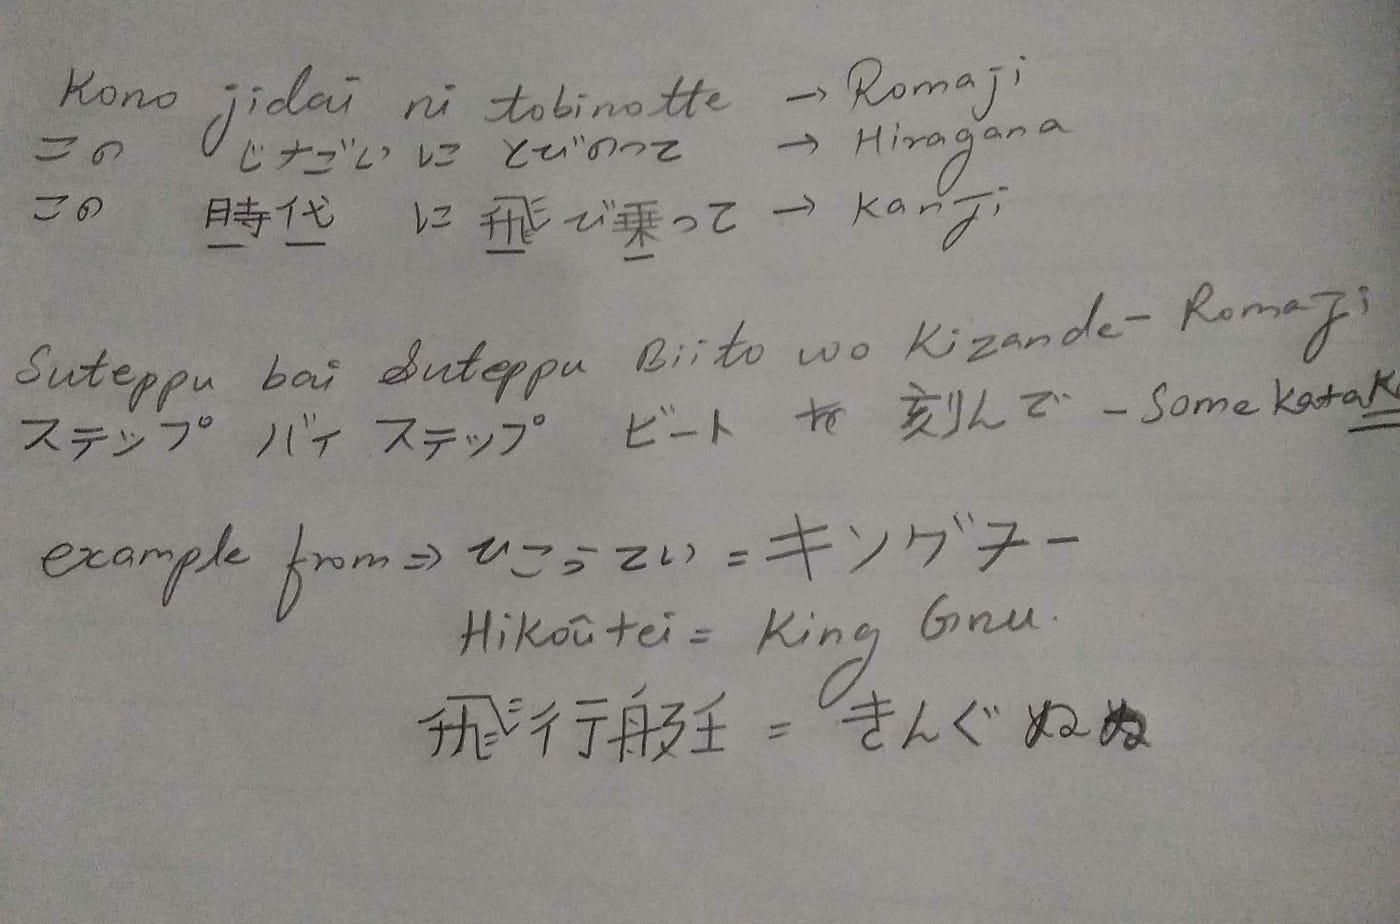 Kono jidai ni tobinotte → Romaji
この じだい に とびのって → Hiragana
この 時代 に 飛び乗って → Kanji
Suteppu bai Suteppu Biito wo Kizande - Romaji
ステップ バイ ステップ ビート を 刻んで - Some Katak
example from ⇒ ひこうてい = キングヌー
Hikoūtei = King Gnu.
飛行艇 = きんぐ ぬぬ